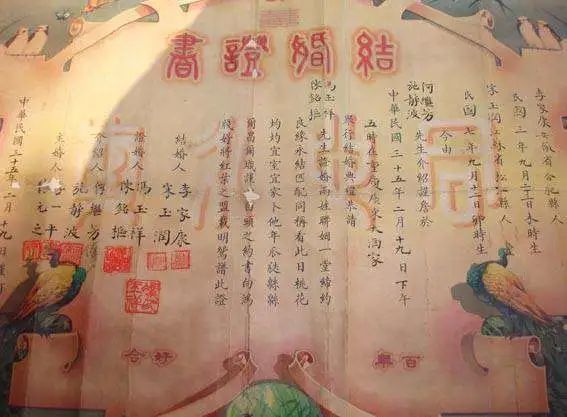 結婚證書
李家康安徽省合肥縣人
民國三年九月二十日未時生
宋玉潤江蘇省松江縣人
民國七年九月二十一日卯時生
今由
何繼芳
沈靜波
先生介紹謹於
中華民國三十五年二月十九日下午
五時在重慶大酒家
舉行結婚典禮恭請
馮玉祥
陳銘樞
先生證婚兩姓聯姻一堂締約
良緣永結匹配同稱看此日桃花
灼灼宜室宜家卜他年瓜瓞緜緜
爾昌爾熾謹以白頭之約書向鴻
箋好將紅葉之盟載明鴛譜此證
結婚人 李家康
宋玉潤
證婚人 馮玉祥
陳銘樞
介紹人 何繼芳
沈靜波
主婚人
中華民國三十五年二月十九日謹訂
百年好合